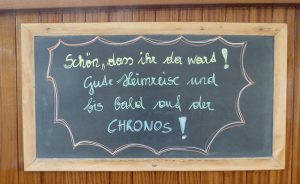 Schön, dass ihr da wart!
Gute Heimreise und
bis bald auf der
CHRONOS!